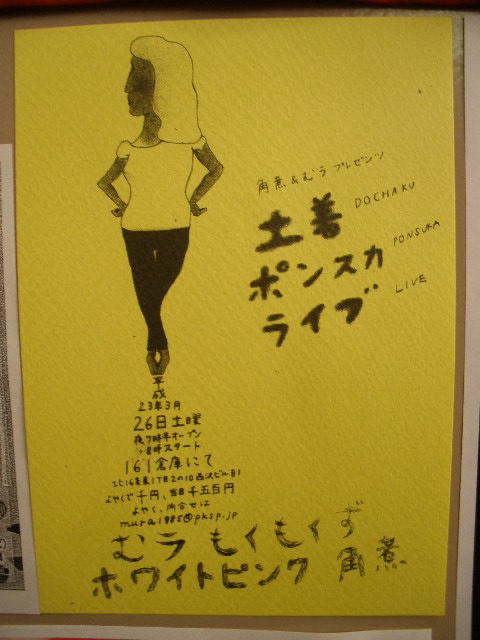 角煮&むラ プレゼンツ
土着 DOCHAKU
ポンスカ PONSUKA
ライブ LIVE
平
成
23年3月
26日土曜
夜7時半オープン
8時スタート
161倉庫にて
北16条東1丁目2の10西沢ビルB1
よやくで千円、当日千五百円
よやく、問合せは
mura1985@pksp.jp
むラ もくもくず
ホワイトピンク 角煮